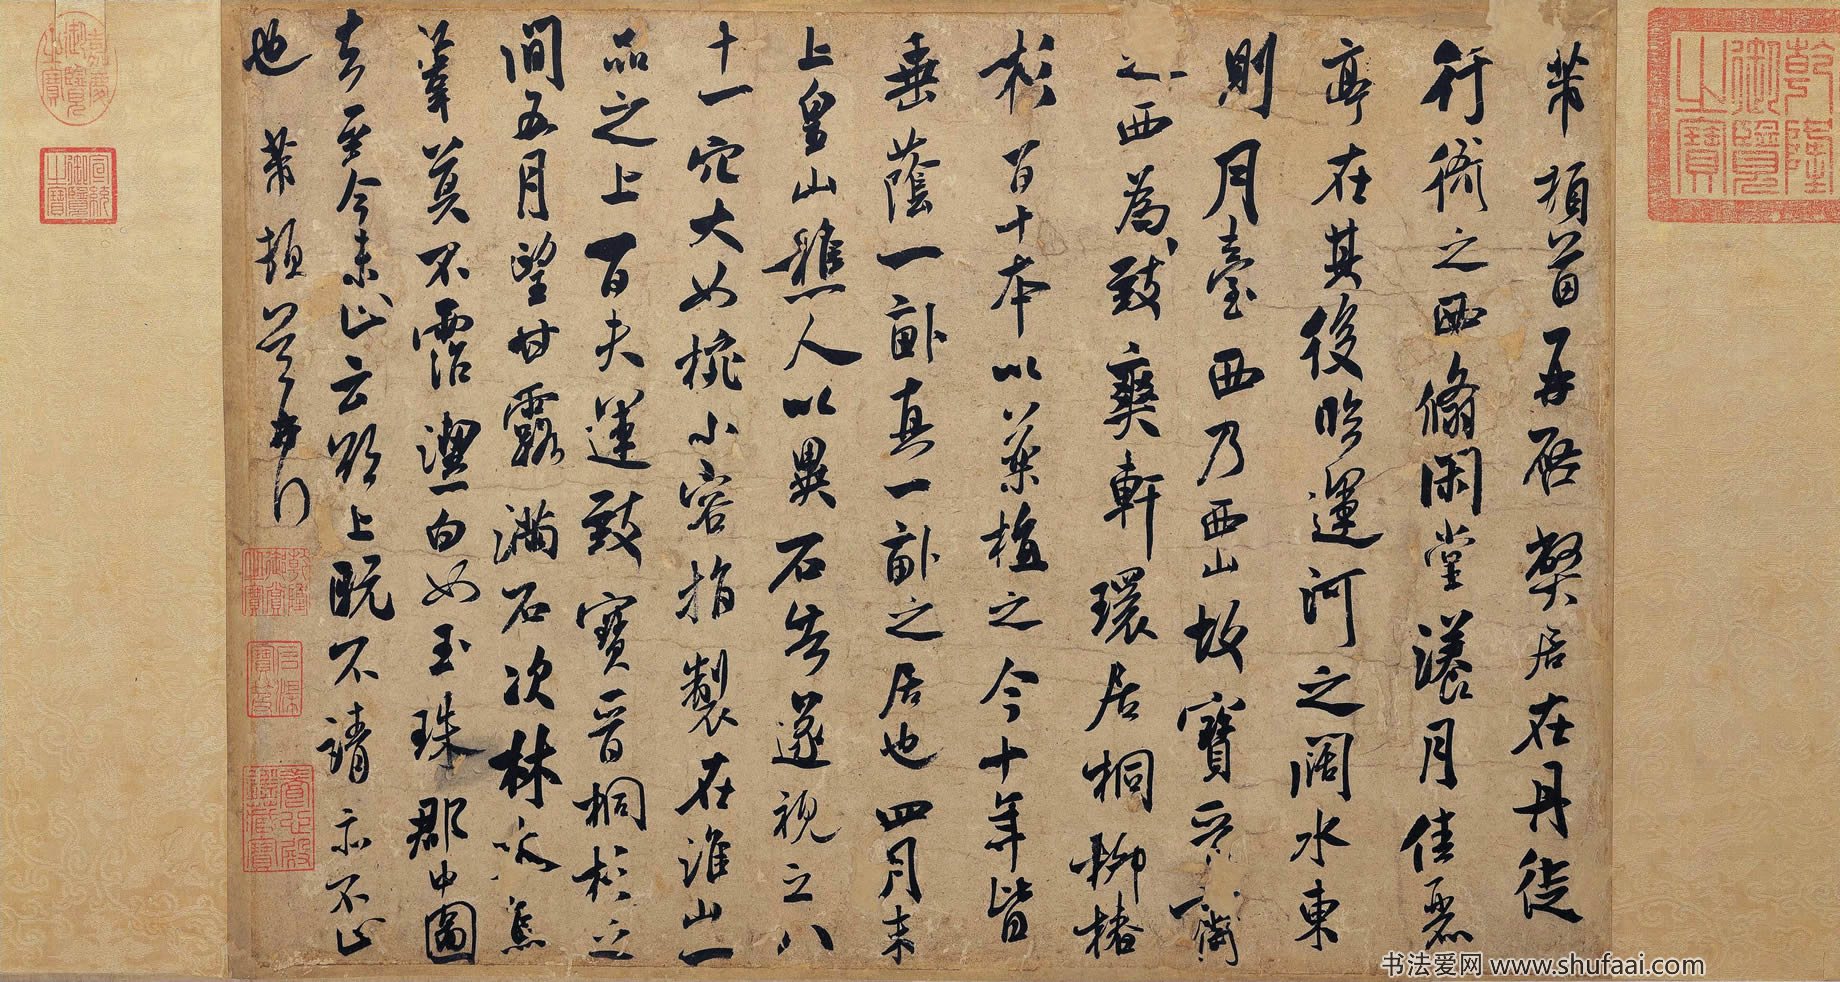 乾隆御覽之寶
芾頓首再啓弊居在丹徒
行衙之西翛閑堂漾月佳麗
亭在其後臨運河之闊水東
則月臺西乃西山故寶晉齋
之西為致爽軒環居桐柳椿
杉百十本以藥植之今十年皆
垂蔭一畝真一畝之居也四月末
上皇山樵人以異石告遂視之八
十一穴大如椀小容指製在淮山一
品之上百夫運致寶晉桐杉之
間五月望甘露滿石次林木焦
葦莫不霑潔白如玉珠郡中圖
去至今未止云欲上既不請亦不止
也芾頓首再拜
乾隆御賞之寶
石渠寶笈
養心殿鑑藏寶
嘉慶御覽之寶
宣統御覽之寶
书法爱网 www.shufaai.com